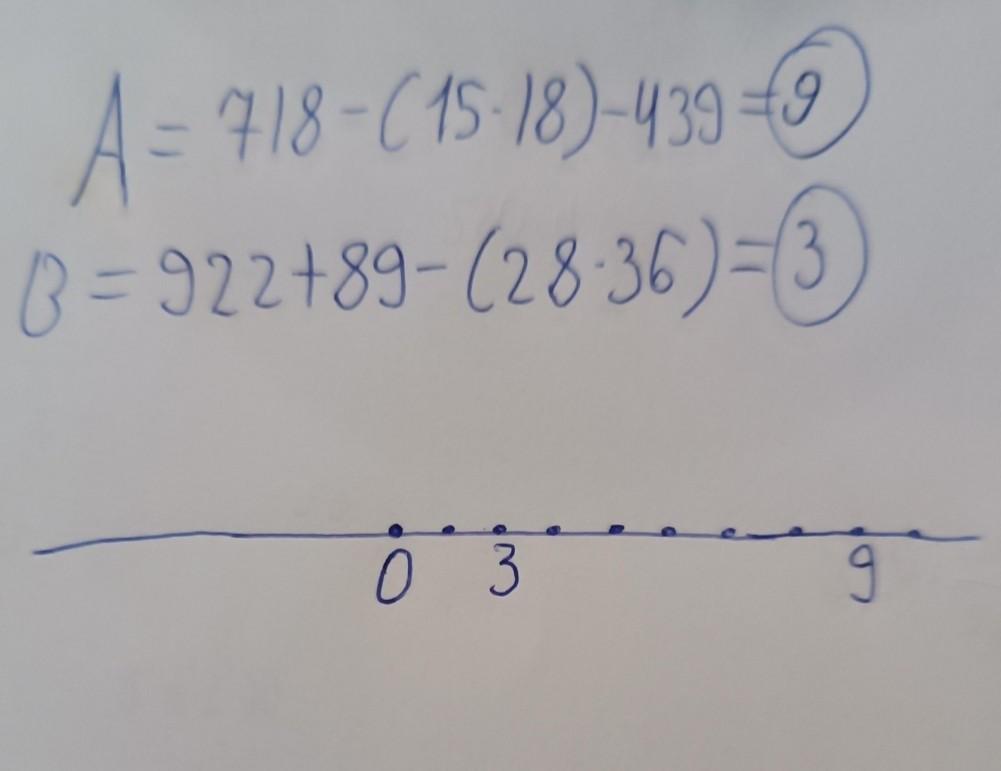 A = 718 - (15 · 18) - 439 = 9
B = 922 + 89 - (28 · 36) = 3
0 3 9